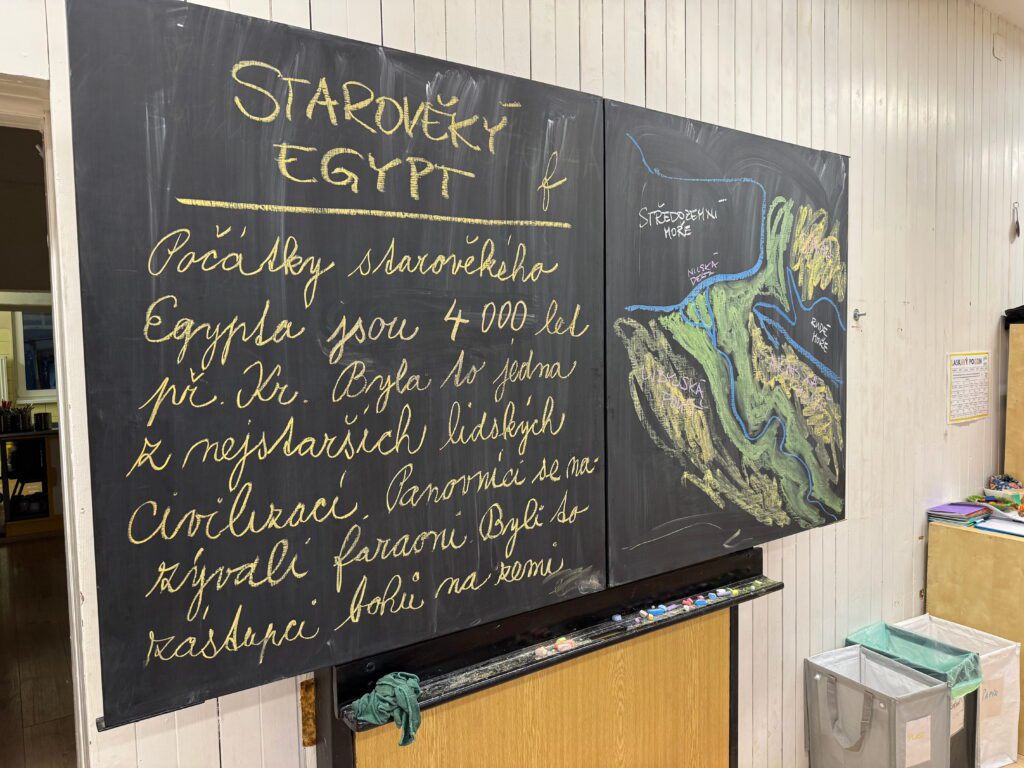 STAROVĚKÝ
EGYPT
f
Počátky starověkého
Egypta jsou 4 000 let
př. Kr. Byla to jedna
z nejstarších lidských
civilizací. Panovníci se na-
zývali faraoni. Byli to
zástupci bohů na zemi
STŘEDOZEMNÍ
MOŘE
NILSKÁ
DELTA
RUDÉ
MOŘE